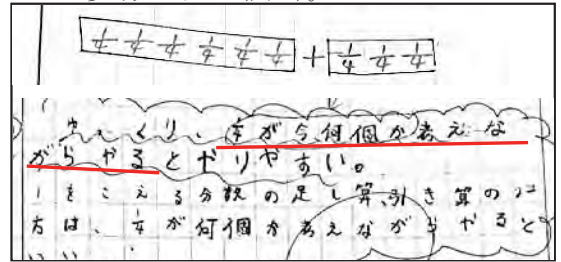 1/4 1/4 1/4 1/4 1/4 1/4 + 1/4 1/4 1/4
ゆっくり、1/4が今、何個か考えな
がらやるとやりやすい。
1をこえる分数の足し算、引き算のし
方は、1/4が何個か考えながらやると
いい